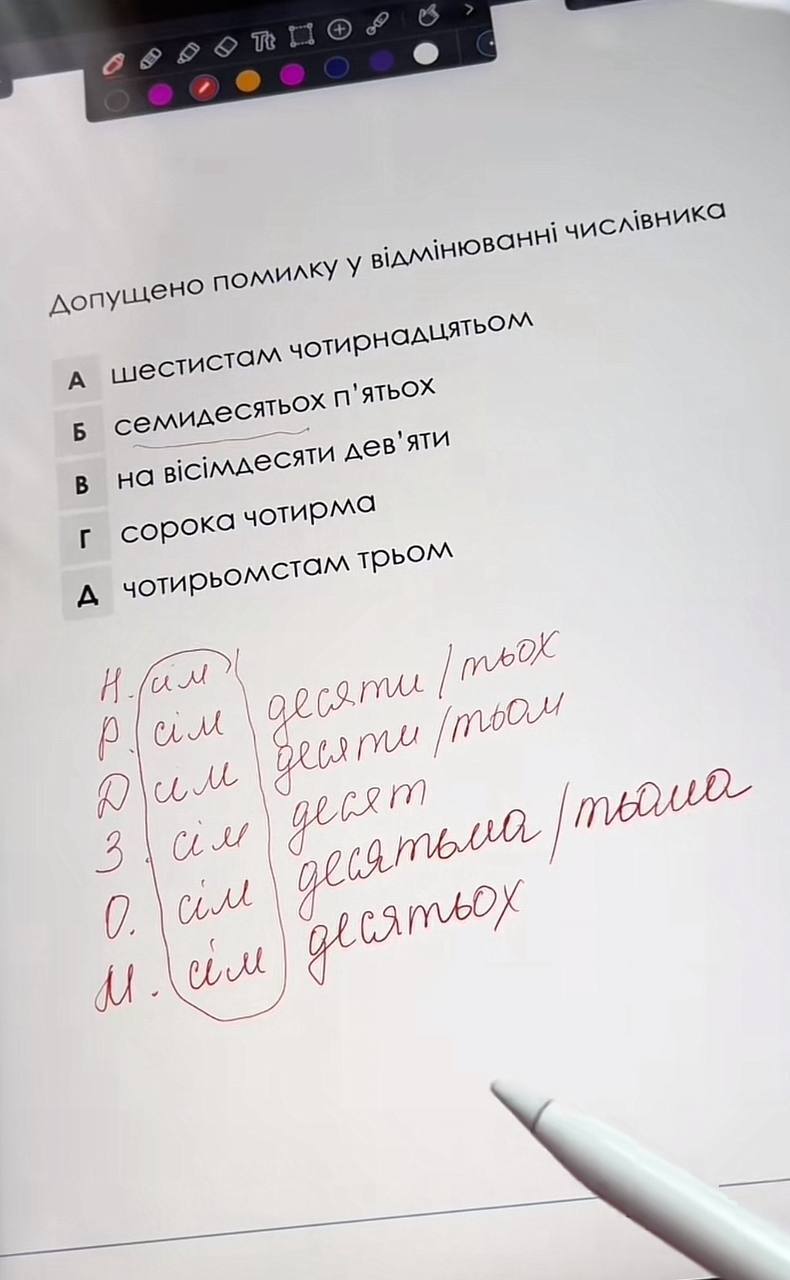 Tt
Допущено помилку у відмінюванні числівника
А шестистам чотирнадцятьом
Б семидесятьох п'ятьох
В на вісімдесяти дев'яти
Г сорока чотирма
Д чотирьомстам трьом
Н. сім
Р. сім десяти / тьох
Д сім десяти / тьом
З. сім десят
О. сім десятьма / тьома
М. сім десятьох